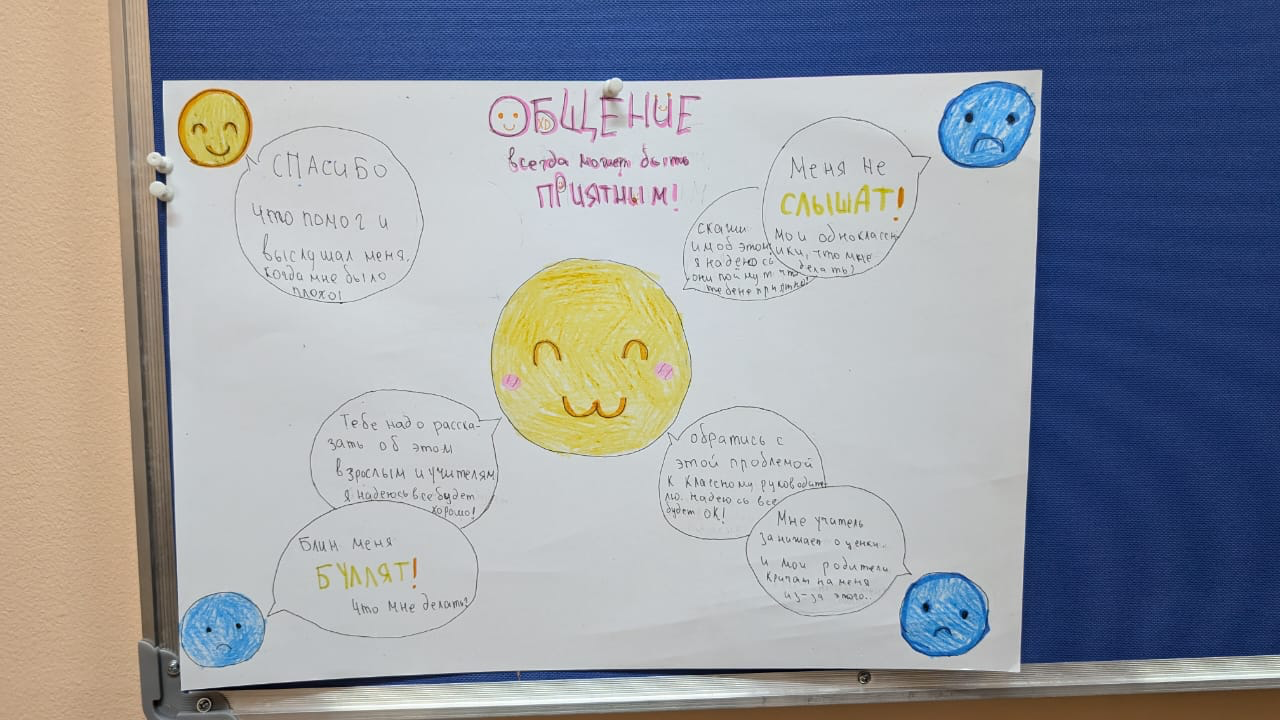 ОБЩЕНИЕ
всегда может быть
ПРИЯТНЫМ!
СПАСИБО
что помог и
выслушал меня,
когда мне было
плохо!
Меня не
СЛЫШАТ!
мои однокласн
ики, что мне
делать?
скажи
им об этом
я надеюсь
они поймут что
тебе не приятно!
Тебе надо расска-
зать об этом
взрослым и учителям
я надеюсь все будет
хорошо!
Блин меня
БУЛЛЯТ!
что мне делать?
обратись с
этой проблемой
к классному руководит
лю. надеюсь все
будет ОК!
Мне учитель
занижает оценки..
и мои родители
кричат на меня
из-за этого..